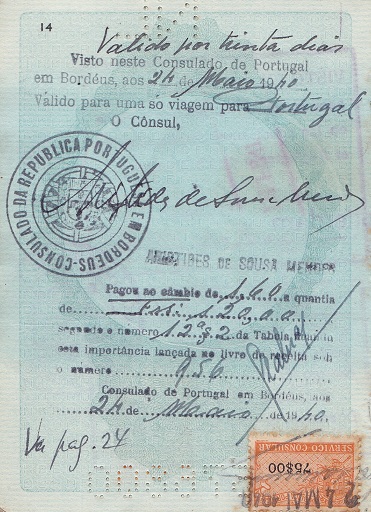 14
Valido por trinta dias
Visto neste Consulado de Portugal
em Bordéus, aos 24 de Maio 1940
Válido para uma só viagem para Portugal
O Cônsul,
CONSULADO DA REPUBLICA PORTUGUESA EM BORDEUS
Aristides de Sousa Mendes
ARISTIDES DE SOUSA MENDES
Pagou ao câmbio de 160 a quantia
de
segundo o número da Tabela
esta importância lançada no livro de receita sob
o número 956
Consulado de Portugal em Bordéus, aos
24 de Maio de 1940.
Ver pag. 24
SERVIÇO CONSULAR
75$00
24 MAI 1940